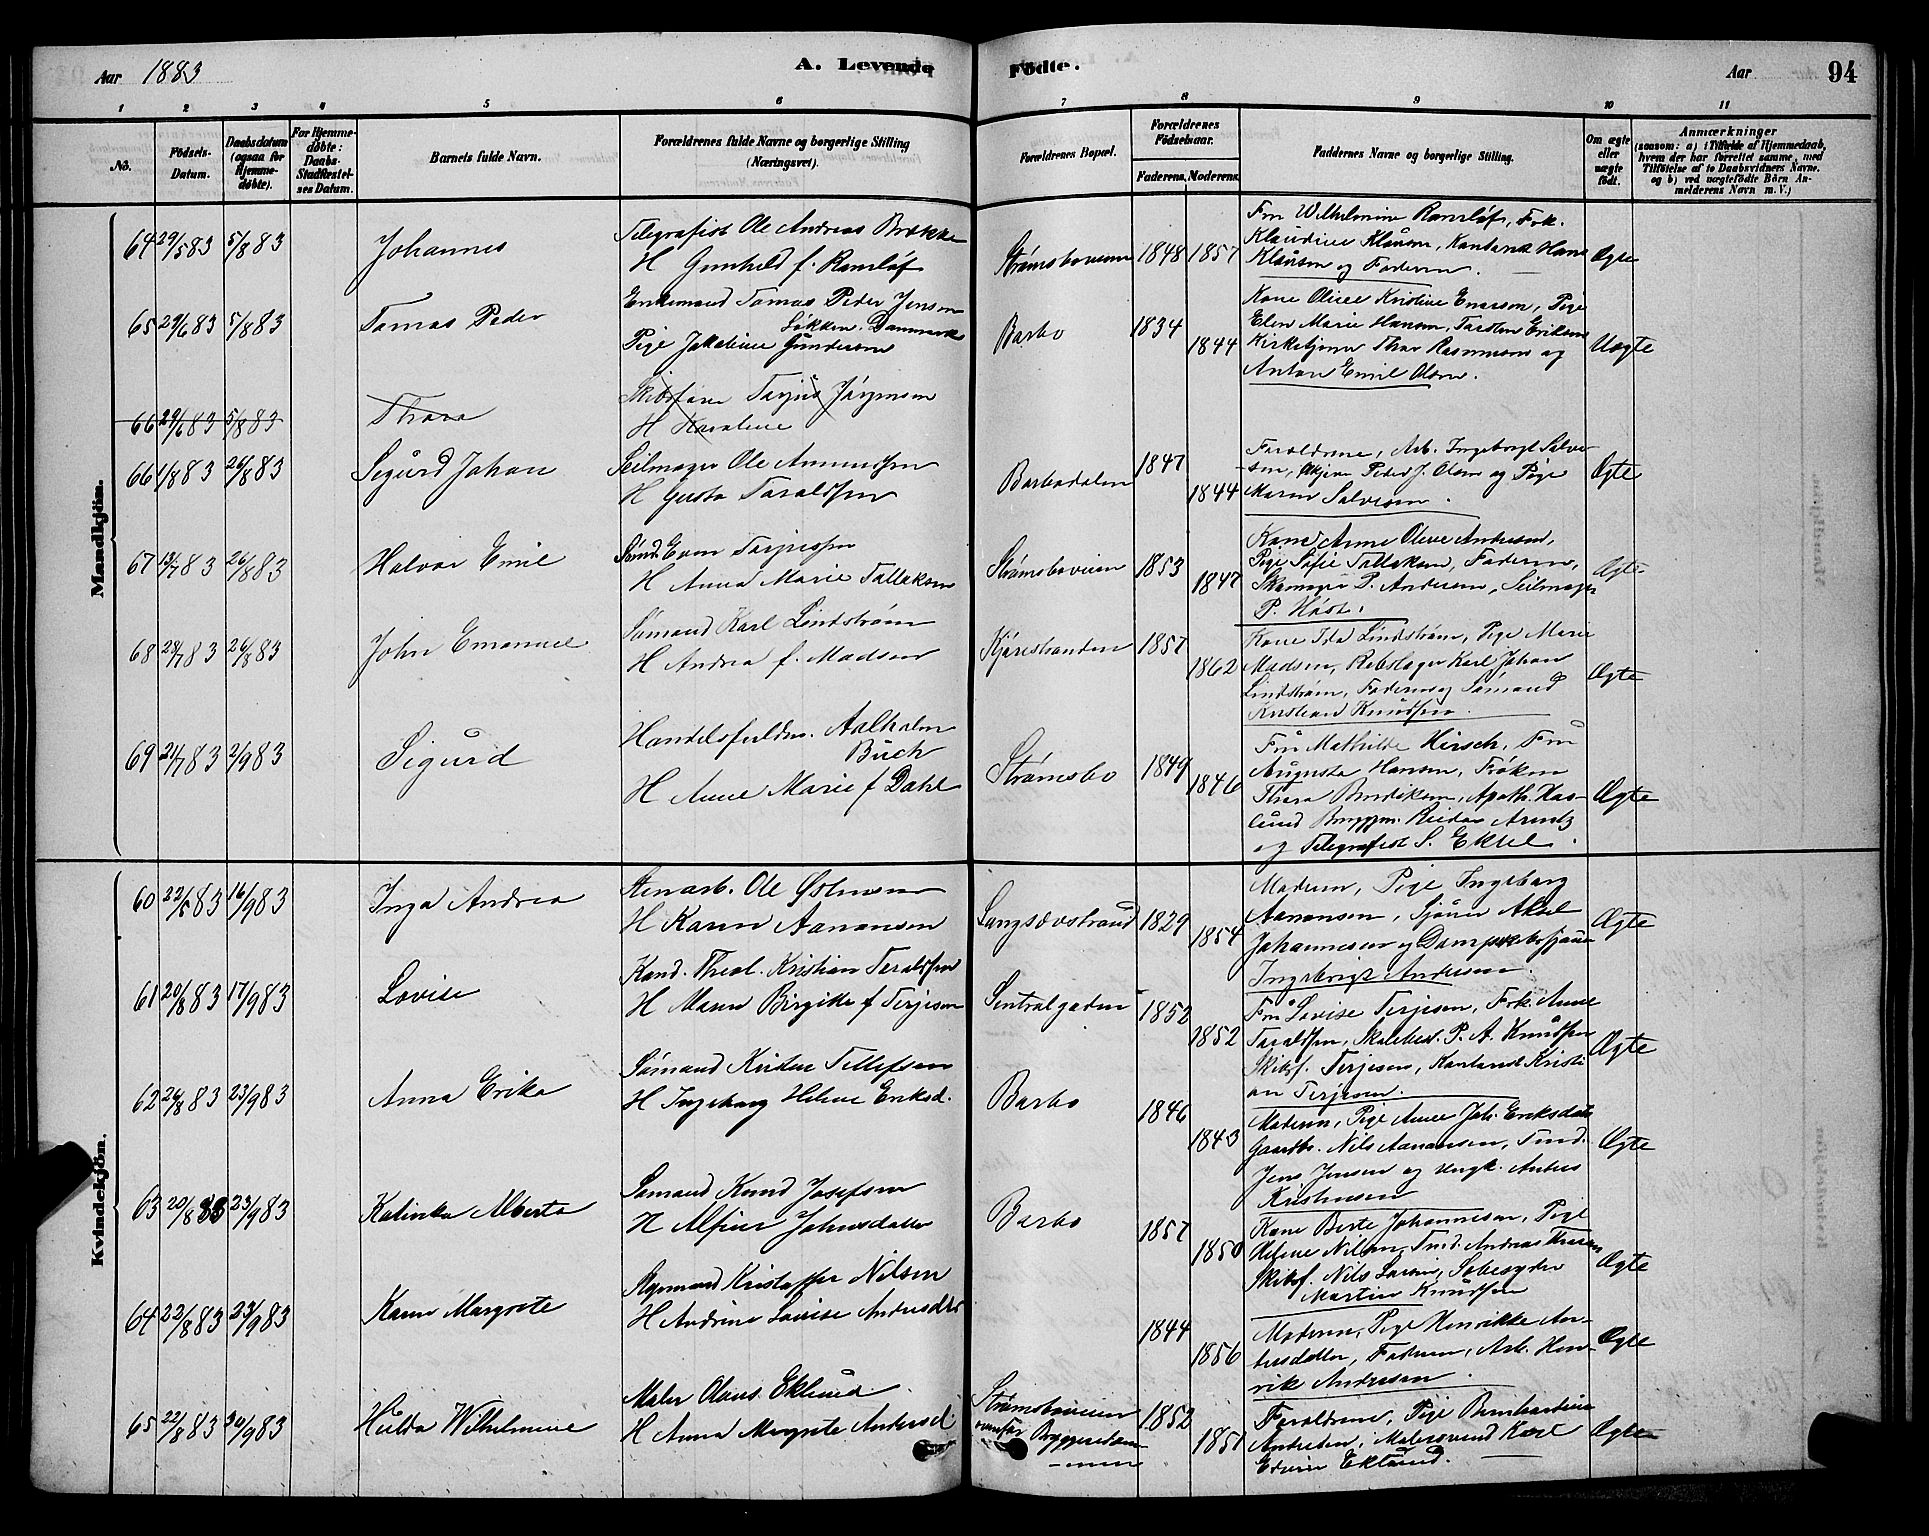 Aar 1883
A. Levende Födte.
Aar
94
1 2 3 4 5 6 7 8 9 10 11
No.
Födsels-Datum.
Daabsdatum (ogsaa for Hjemmedøbte).
For Hjemmedøbte: Daabs-Stadfæstelses Datum.
Barnets fulde Navn.
Forældrenes fulde Navne og borgerlige Stilling (Næringsvei).
Forældrenes Bopæl.
Forældrenes Födselsaar.
Faderens. Moderens.
Faddernes Navne og borgerlige Stilling.
Om ægte eller uægte født.
Anmærkninger
(saasom: a) i Tilfælde af Hjemmedaab, hvem der har forrettet samme, med Tilföielse af to Daabsvidners Navne. og b) ved uægtefödte Börn Anmelderens Navn m. V.)
Mandkjön.
64 29/5 83 5/8 83 Johannes
Telegrafist Ole Andreas Brække
H Gunhild f. Ramløf
Strømsboveien 1848 1857
Fru Wilhelmine Ramsløf, Frk.
Klaudine Klausen, Kontorist Hans
Klausen og Faderen.
Ægte
65 29/6 83 5/8 83 Tomas Peder
Enkemand Tomas Peder Jensen
Løkken. Danmark
Pige Jakobine Gundersen
Barbo 1834 1844
Kone Olise Kristine Enersen, Pige
Elen Marie Hansen, Torsten Eriksen
Kirketjener Thor Rasmussen og
Anton Emil Olsen.
Uægte
66 29/6 83 5/8 83 Thora
Skibsfører Terjus Jørgensen
H Karoline
66 1/8 83 26/8 83 Sigurd Johan
Seilmager Ole Amundsen
H Gusta Taraldsen
Barbodalen 1847 1844
Forældrene, Arb. Ingebregt Salve-
sen, Peder J. Olsen og Pige
Maren Salvesen.
Ægte
67 13/7 83 26/8 83 Halvor Emil
Sømd. Even Terjesen
H Anna Marie Tallaksen
Strømsboveien 1853 1847
Kone Anne Olive Andersen,
Pige Sofie Tallaksen, Faderen,
Skomager P. Andersen, Seilmager
P. Høst.
Ægte
68 28/7 83 26/8 83 John Emanuel
Sømand Karl Lindstrøm
H Andrea f. Madsen
Kjærestranden 1857 1862
Kone Ida Lindstrøm, Pige Marie
Madsen, Rebslager Karl Johan
Lindstrøm, Faderen og Sømand
Kristian Knudsen.
Ægte
69 21/7 83 2/9 83 Sigurd
Handelsfuldm. Aalholm
Buch
H Anne Marie f Dahl
Strømsbo 1849 1846
Fru Mathilde Hirsch, Fru
Augusta Hansen, Frøken
Thora Bendiksen, Apoth. Has-
lund Bryggm. Reidar Arentz
og Telegrafist S. Eksel.
Ægte
Kvindekjön.
60 22/5 83 16/9 83 Inga Andrea
Stenarb. Ole Østensen
H Karen Aanonsen
Langsævstrand 1829 1854
Moderen, Pige Ingeborg
Aanonsen, Sjøner Aksel
Johannesen og
Ingebrigt Andersen.
Ægte
61 20/8 83 17/9 83 Lovise
Kand. Theol. Kristian Taraldsen
H Maren Birgitte f Terjesen
Sentralgaden 1852 1852
Fru Lovise Terjesen, Frk. Anne
Taraldsen, Skolebest. P. A. Knudsen
Skibsf. Terjesen, Kontorist Kristi
an Terjesen.
Ægte
62 26/8 83 23/9 83 Anna Erika
Sømand Kristen Tellefsen
H Ingeborg Helene Eriksd.
Barbo 1846 1843
Moderen, Pige Anne Joh. Eriksdatt.
Gaardbr. Nils Aanonsen, Tmd.
Jens Jensen og Ungk. Anders
Kristensen
Ægte
63 20/8 83 23/9 83 Katinka Alberta
Sømand Knud Josefsen
H Alfine Johnsdatter
Barbo 1857 1850
Kone Berte Johannesen, Pige
Helene Nilsen, Tmd. Andreas
Skibsf. Nils Larsen,
Martin Knudsen
Ægte
64 22/8 83 23/9 83 Karen Margrete
Kristoffer Nilsen
H Andrine Lovise Andersdtr
1844 1856
Moderen, Pige Henrikke An-
dersdatter, Faderen, Arb. Hen-
rik Andersen.
Ægte
65 22/8 83 30/9 83 Hulda Wilhelmine
Maler Olaus Eklund
H Anna Margrete Andersd
Strømsboveien
1852 1851
Forældrene, Pige Bernhardine
Andersen, Malersvend Karl
Edvin Eklund.
Ægte